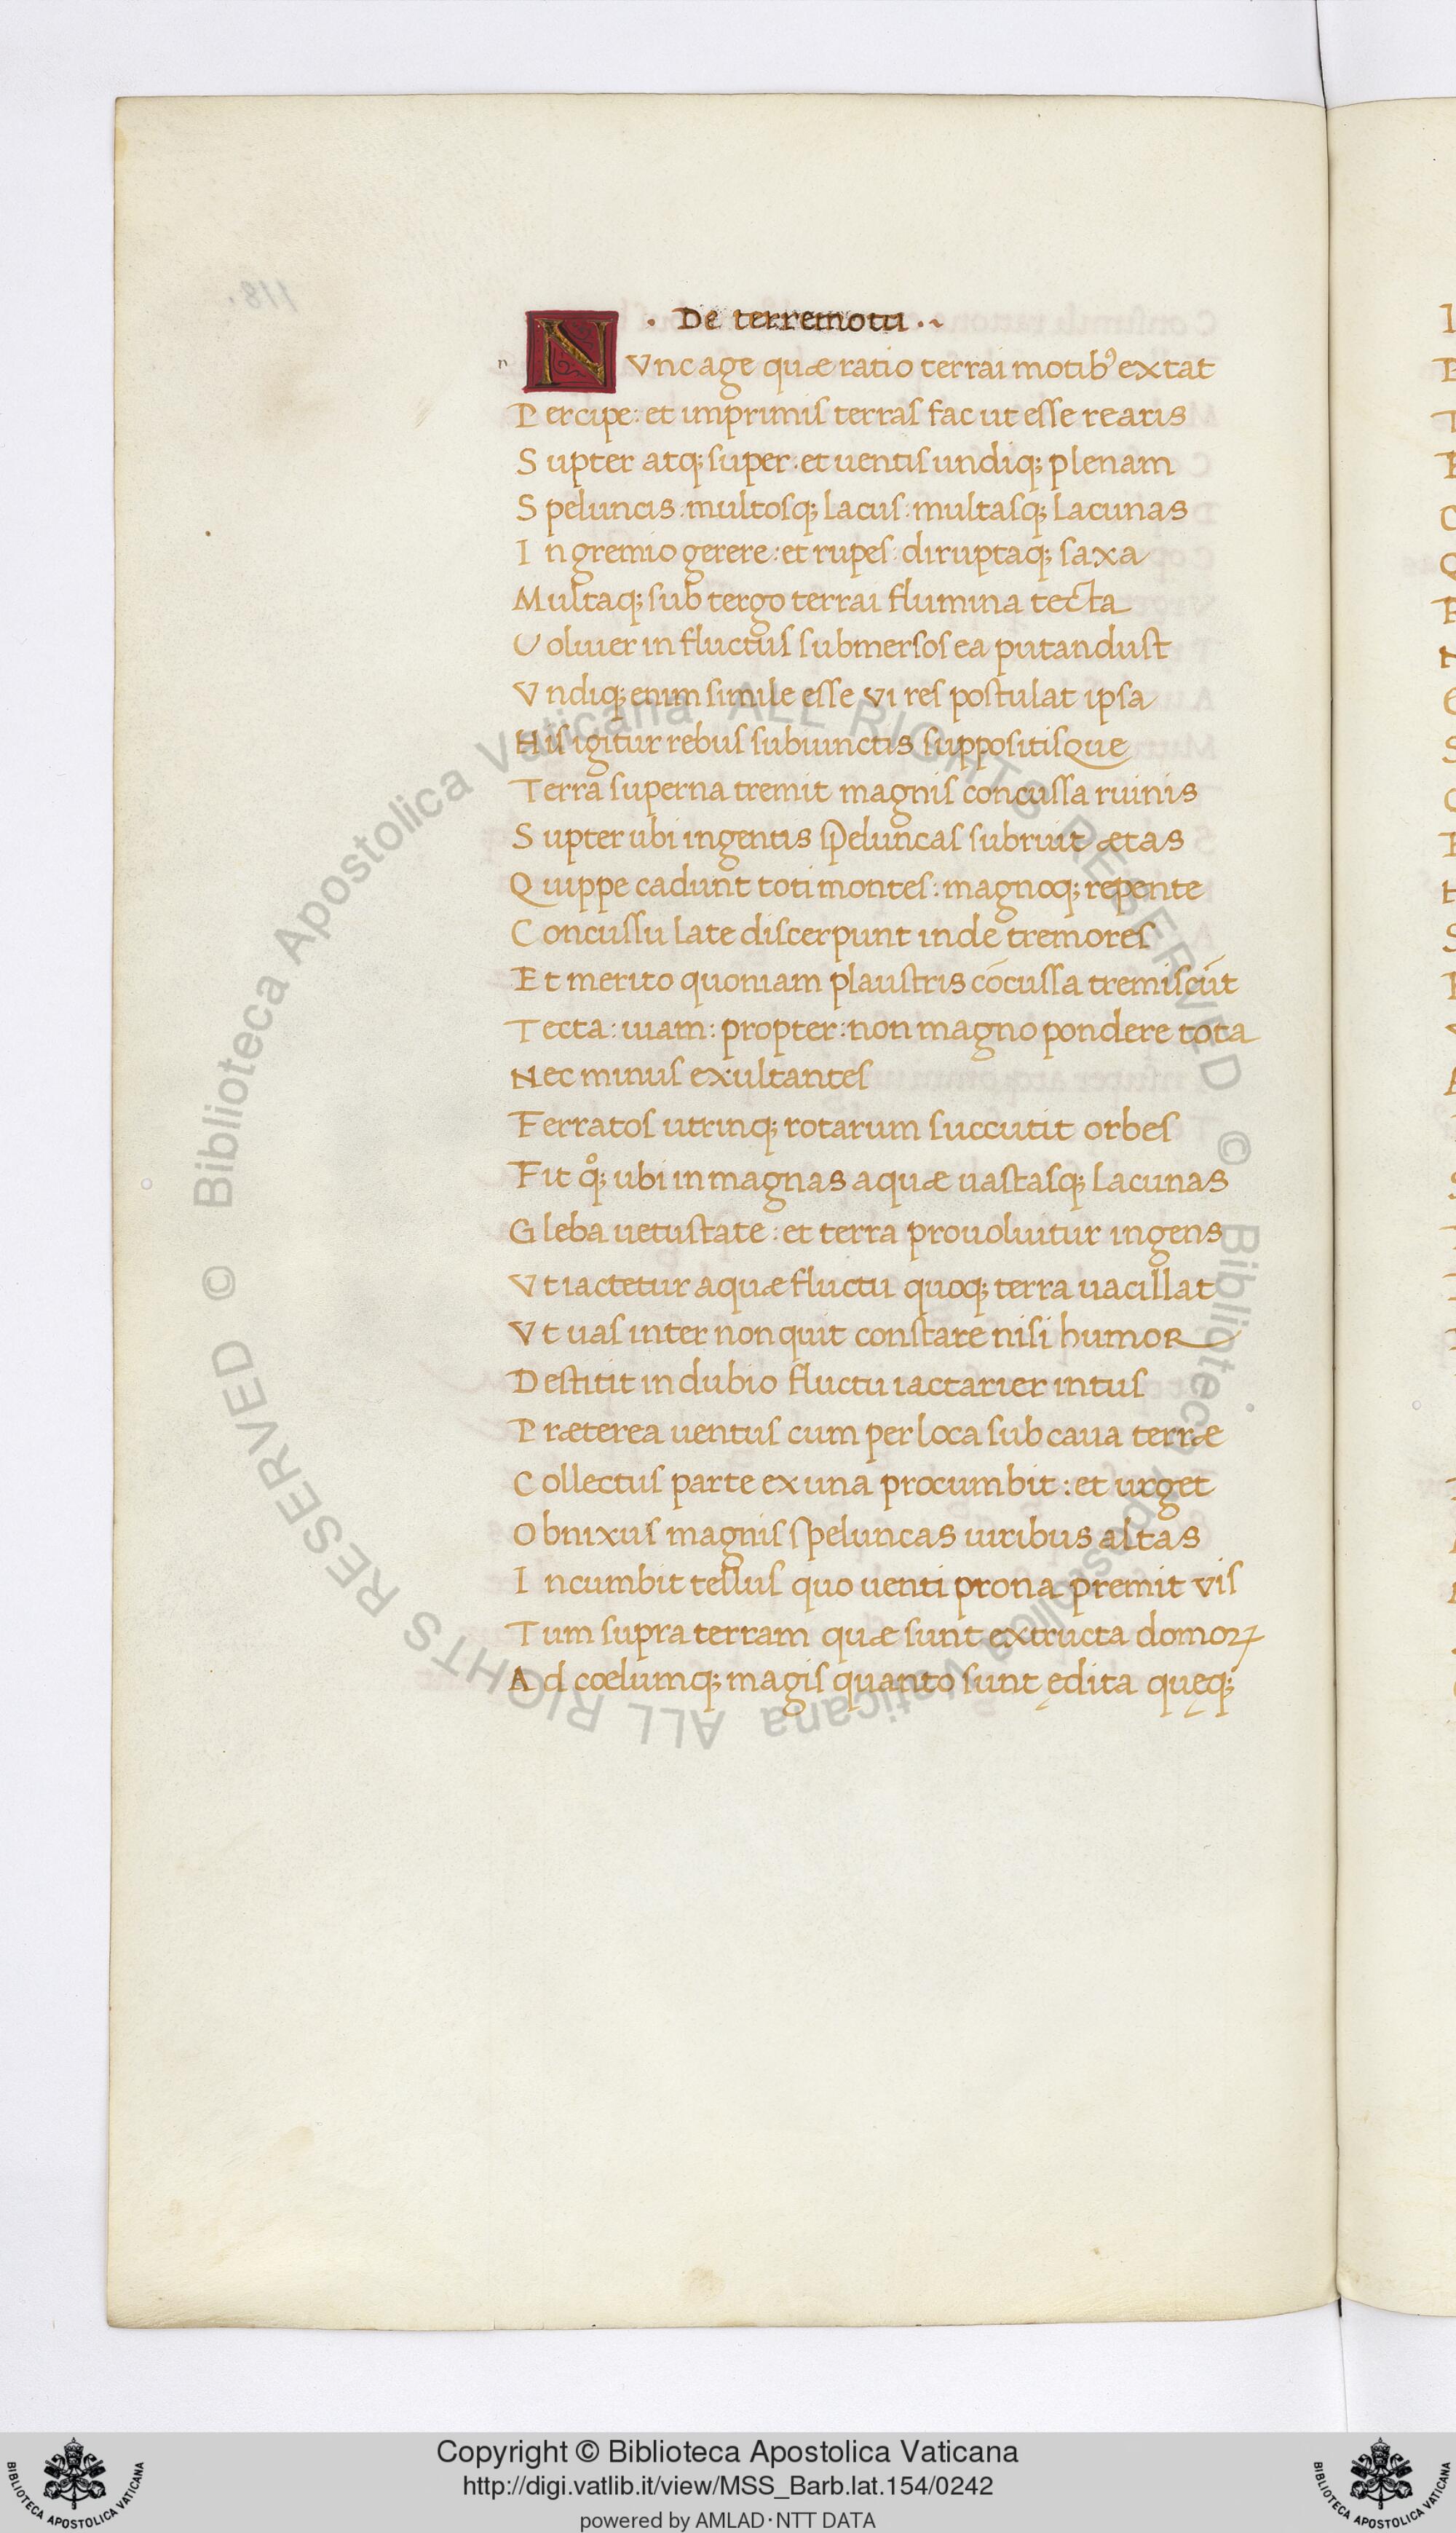 118.
· De terremotu ·~
n
NVnc age quæ ratio terrai motibꝰ extat
Percipe: et imprimis terras fac ut esse rearis
Supter atq; super: et uentis undiq; plenam
Speluncis: multosq; lacus: multasq; lacunas
In gremio gerere: et rupes: diruptaq; saxa
Multaq; sub tergo terrai flumina tecta
Uoluier in fluctus submersos ea putandust
Vndiq; enim simile esse vi res postulat ipsa
His igitur rebus subiunctis suppositisque
Terra superna tremit magnis concussa ruinis
Supter ubi ingentis speluncas subruit ætas
Quippe cadunt toti montes: magnoq; repente
Concussu late discerpunt inde tremores
Et merito quoniam plaustris cōcussa tremiscūt
Tecta: uiam: propter: non magno pondere tota
Nec minus exultantes
Ferratos utrinq; rotarum succutit orbes
Fit qͦ; ubi in magnas aquæ uastasq; lacunas
Gleba uetustate: et terra prouoluitur ingens
Vt iactetur aquæ fluctu quoq; terra uacillat
Vt uas inter non quit constare nisi humor
Destitit in dubio fluctu iactarier intus
Præterea uentus cum per loca sub caua terræ
Collectus parte ex una procumbit: et urget
Obnixus magnis speluncas uiribus altas
Incumbit tellus quo uenti prona premit vis
Tum supra terram quæ sunt extructa domoꝝ
Ad cœlumq; magis quanto sunt ędita quęq;
© Biblioteca Apostolica Vaticana ALL RIGHTS RESERVED
© Biblioteca Apostolica Vaticana ALL RIGHTS RESERVED
Copyright © Biblioteca Apostolica Vaticana
http://digi.vatlib.it/view/MSS_Barb.lat.154/0242
powered by AMLAD·NTT DATA
BIBLIOTECA APOSTOLICA VATICANA
BIBLIOTECA APOSTOLICA VATICANA